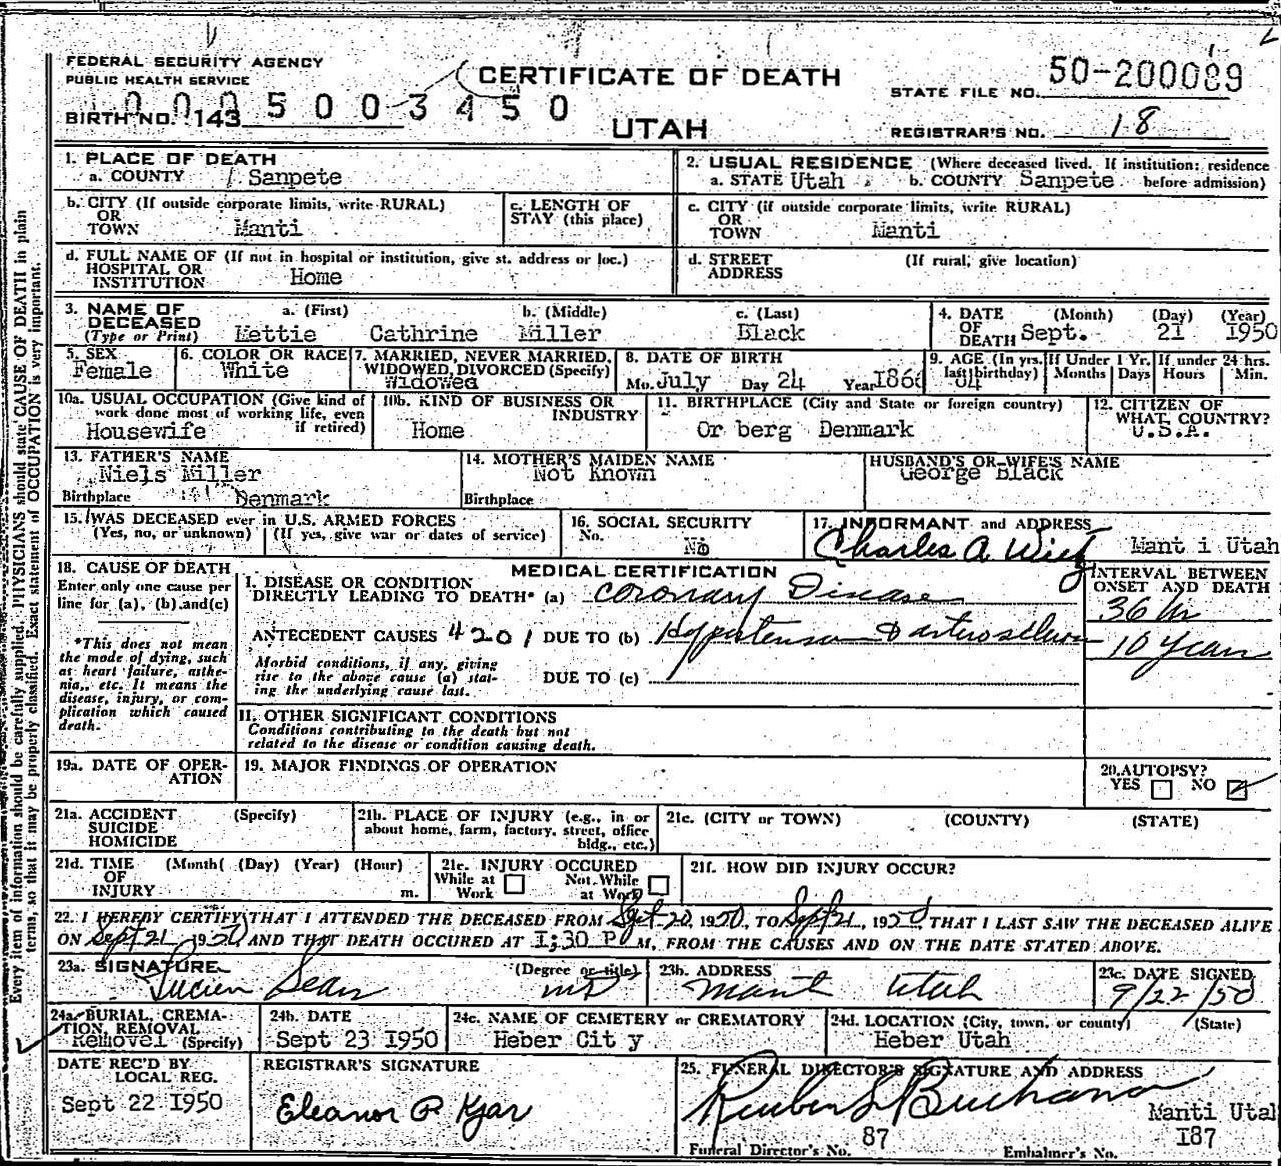 FEDERAL SECURITY AGENCY
PUBLIC HEALTH SERVICE
CERTIFICATE OF DEATH
UTAH
BIRTH NO. 143
0005003450
STATE FILE NO. 50-200089
REGISTRAR'S NO. 18
1. PLACE OF DEATH
a. COUNTY Sanpete
2. USUAL RESIDENCE (Where deceased lived. If institution: residence
a. STATE Utah b. COUNTY Sanpete before admission)
b. CITY (If outside corporate limits, write RURAL)
OR
TOWN Manti
c. LENGTH OF
STAY (this place)
c. CITY (if outside corporate limits, write RURAL)
OR
TOWN Manti
d. FULL NAME OF (If not in hospital or institution, give st. address or loc.)
HOSPITAL OR
INSTITUTION Home
d. STREET (If rural, give location)
ADDRESS
3. NAME OF DECEASED (Type or Print)
a. (First) b. (Middle) c. (Last)
Mettie Cathrine Miller Black
4. DATE OF DEATH (Month) (Day) (Year)
Sept. 21 1950
5. SEX
Female
6. COLOR OR RACE
White
7. MARRIED, NEVER MARRIED,
WIDOWED, DIVORCED (Specify)
Widowed
8. DATE OF BIRTH
Mo. July Day 24 Year 1866
9. AGE (In yrs. last birthday)
84
If Under 1 Yr.
Months Days
If under 24 hrs.
Hours Min.
10a. USUAL OCCUPATION (Give kind of
work done most of working life, even
if retired)
Housewife
10b. KIND OF BUSINESS OR
INDUSTRY
Home
11. BIRTHPLACE (City and State or foreign country)
Or berg Denmark
12. CITIZEN OF
WHAT COUNTRY?
U.S.A.
13. FATHER'S NAME
Niels Miller
Birthplace Denmark
14. MOTHER'S MAIDEN NAME
Not Known
Birthplace
HUSBAND'S OR WIFE'S NAME
George Black
15. WAS DECEASED ever in U.S. ARMED FORCES
(Yes, no, or unknown) (If yes, give war or dates of service)
16. SOCIAL SECURITY
No. No
17. INFORMANT and ADDRESS
Charles A. Mant i Utah
18. CAUSE OF DEATH
Enter only one cause per
line for (a), (b) and (c)
*This does not mean
the mode of dying, such
as heart failure, asthe-
nia,. etc. It means the
disease, injury, or com-
plication which caused
death.
MEDICAL CERTIFICATION
I. DISEASE OR CONDITION
DIRECTLY LEADING TO DEATH* (a) Coronary Disease
ANTECEDENT CAUSES 4201 DUE TO (b) Hypertension & arterosclerosis
Morbid conditions, if any, giving
rise to the above cause (a) stat-
ing the underlying cause last.
DUE TO (c)
INTERVAL BETWEEN
ONSET AND DEATH
36 hr
10 Years
II. OTHER SIGNIFICANT CONDITIONS
Conditions contributing to the death but not
related to the disease or condition causing death.
19a. DATE OF OPER-
ATION
19. MAJOR FINDINGS OF OPERATION
20. AUTOPSY?
YES NO
21a. ACCIDENT (Specify)
SUICIDE
HOMICIDE
21b. PLACE OF INJURY (e.g., in or
about home, farm, factory, street, office
bldg., etc.)
21c. (CITY or TOWN) (COUNTY) (STATE)
21d. TIME (Month( (Day) (Year) (Hour)
OF
INJURY m.
21e. INJURY OCCURED
While at Work Not While at Work
21f. HOW DID INJURY OCCUR?
22. I HEREBY CERTIFY THAT I ATTENDED THE DECEASED FROM Sept 20, 1950, TO Sept 21, 1950 THAT I LAST SAW THE DECEASED ALIVE
ON Sept 21 1950 AND THAT DEATH OCCURED AT 1;30 P M, FROM THE CAUSES AND ON THE DATE STATED ABOVE.
23a. SIGNATURE (Degree or title)
Lucien Sears MD
23b. ADDRESS
Manti Utah
23c. DATE SIGNED
9/22/50
24a. BURIAL, CREMA-
TION, REMOVAL
Removel (Specify)
24b. DATE
Sept 23 1950
24c. NAME OF CEMETERY or CREMATORY
Heber Cit y
24d. LOCATION (City, town, or county) (State)
Heber Utah
DATE REC'D BY
LOCAL REG.
Sept 22 1950
REGISTRAR'S SIGNATURE
Eleanor P Kjar
25. FUNERAL DIRECTOR'S SIGNATURE AND ADDRESS
Reuben S Buchanan
Manti Utah
Funeral Director's No. 87
Embalmer's No. 187
Every item of information should be carefully supplied. PHYSICIANS should state CAUSE OF DEATH in plain
terms, so that it may be properly classified. Exact statement of OCCUPATION is very important.